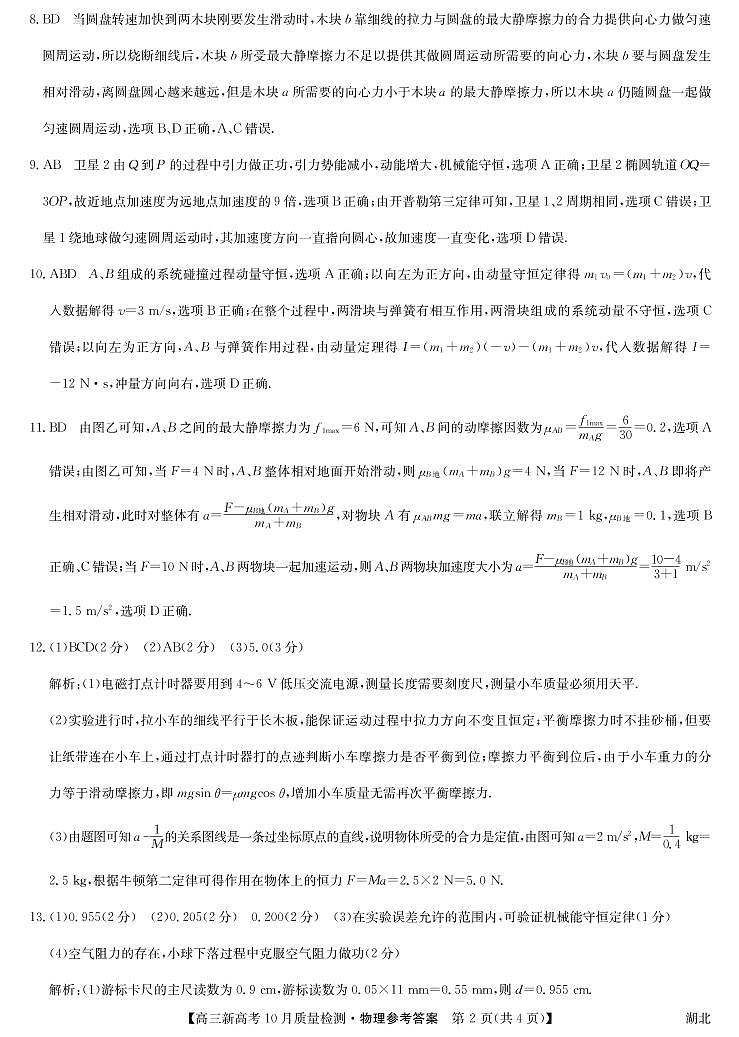 8. BD 当圆盘转速加快到两木块刚要发生滑动时,木块 b 靠细线的拉力与圆盘的最大静摩擦力的合力提供向心力做匀速
圆周运动,所以烧断细线后,木块 b 所受最大静摩擦力不足以提供其做圆周运动所需要的向心力,木块 b 要与圆盘发生
相对滑动,离圆盘圆心越来越远,但是木块 a 所需要的向心力小于木块 a 的最大静摩擦力,所以木块 a 仍随圆盘一起做
匀速圆周运动,选项 B、D 正确,A、C 错误.
9. AB 卫星 2 由 Q 到 P 的过程中引力做正功,引力势能减小,动能增大,机械能守恒,选项 A 正确;卫星 2 椭圆轨道 OQ=
3OP,故近地点加速度为远地点加速度的 9 倍,选项 B 正确;由开普勒第三定律可知,卫星 1、2 周期相同,选项 C 错误;卫
星 1 绕地球做匀速圆周运动时,其加速度方向一直指向圆心,故加速度一直变化,选项 D 错误.
10. ABD A、B 组成的系统碰撞过程动量守恒,选项 A 正确;以向左为正方向,由动量守恒定律得 m₁v₀=(m₁+m₂)v,代
入数据解得 v=3 m/s,选项 B 正确;在整个过程中,两滑块与弹簧有相互作用,两滑块组成的系统动量不守恒,选项 C
错误;以向左为正方向,A、B 与弹簧作用过程,由动量定理得 I=(m₁+m₂)(-v)-(m₁+m₂)v,代入数据解得 I=
-12 N·s,冲量方向向右,选项 D 正确.
11. BD 由图乙可知,A、B 之间的最大静摩擦力为 f₁max=6 N,可知 A、B 间的动摩擦因数为 μAB=f₁max/mAg=6/30=0.2,选项 A
错误;由图乙可知,当 F=4 N 时,A、B 整体相对地面开始滑动,则 μB地(mA+mB)g=4 N,当 F=12 N 时,A、B 即将产
生相对滑动,此时对整体有 a=(F-μB地(mA+mB)g)/(mA+mB),对物块 A 有 μABmg=ma,联立解得 mB=1 kg,μB地=0.1,选项 B
正确、C 错误;当 F=10 N 时,A、B 两物块一起加速运动,则 A、B 两物块加速度大小为 a=(F-μB地(mA+mB)g)/(mA+mB)=(10-4)/(3+1) m/s²
=1.5 m/s²,选项 D 正确.
12. (1)BCD(2 分) (2)AB(2 分) (3)5.0(3 分)
解析:(1)电磁打点计时器要用到 4~6 V 低压交流电源,测量长度需要刻度尺,测量小车质量必须用天平.
(2)实验进行时,拉小车的细线平行于长木板,能保证运动过程中拉力方向不变且恒定;平衡摩擦力时不挂砂桶,但要
让纸带连在小车上,通过打点计时器打的点迹判断小车摩擦力是否平衡到位;摩擦力平衡到位后,由于小车重力的分
力等于滑动摩擦力,即 mgsin θ=μmgcos θ,增加小车质量无需再次平衡摩擦力.
(3)由题图可知 a-1/M的关系图线是一条过坐标原点的直线,说明物体所受的合力是定值,由图可知 a=2 m/s²,M=1/0.4 kg=
2.5 kg,根据牛顿第二定律可得作用在物体上的恒力 F=Ma=2.5×2 N=5.0 N.
13. (1)0.955(2 分) (2)0.205(2 分) 0.200(2 分) (3)在实验误差允许的范围内,可验证机械能守恒定律(1 分)
(4)空气阻力的存在,小球下落过程中克服空气阻力做功(2 分)
解析:(1)游标卡尺的主尺读数为 0.9 cm,游标读数为 0.05×11 mm=0.55 mm,则 d=0.955 cm.
【高三新高考 10 月质量检测·物理参考答案 第 2 页(共 4 页)】 湖北